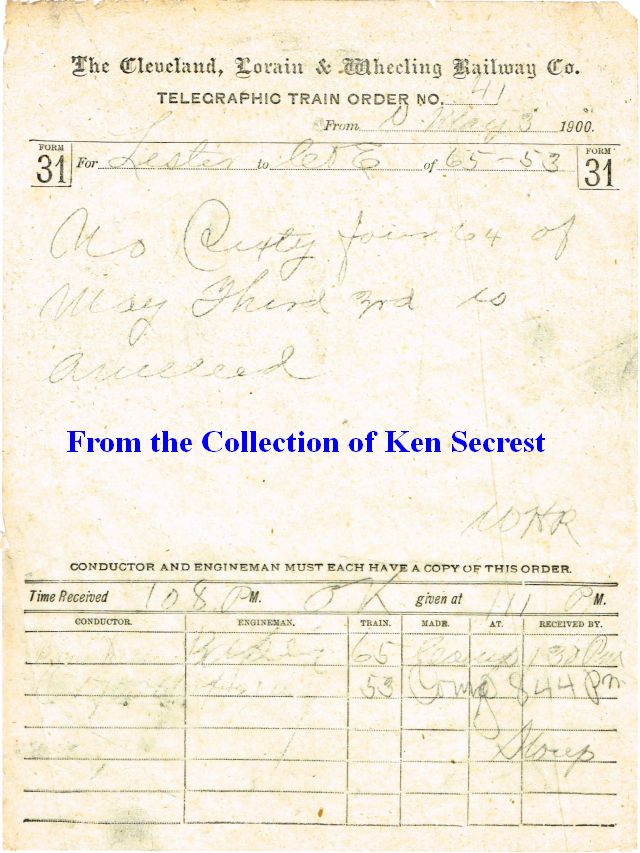 The Cleveland, Lorain & Wheeling Railway Co.
TELEGRAPHIC TRAIN ORDER NO. 41
From D May 3 1900.
FORM 31 For Lester to C&E of 65-53 FORM 31
No Sixty four 64 of
May Third 3rd is
annulled
From the Collection of Ken Secrest
WHR
CONDUCTOR AND ENGINEMAN MUST EACH HAVE A COPY OF THIS ORDER.
Time Received 108 PM. OK given at 111 PM.
CONDUCTOR. ENGINEMAN. TRAIN. MADE. AT. RECEIVED BY.
65 Comp 130 Pm
53 Comp 844 Pm